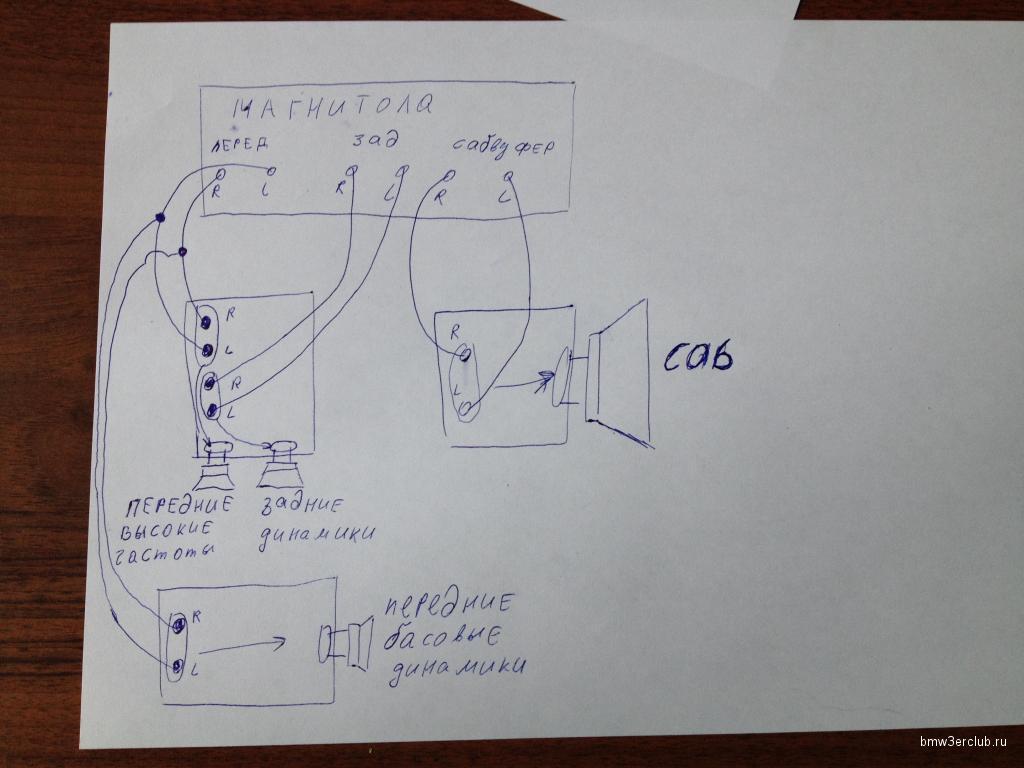 МАГНИТОЛА
ПЕРЕД ЗАД САБВУФЕР
R L R L R L
R
L
R
L
R
L
САБ
ПЕРЕДНИЕ
ВЫСОКИЕ
ЧАСТОТЫ
ЗАДНИЕ
ДИНАМИКИ
R
L
ПЕРЕДНИЕ
БАСОВЫЕ
ДИНАМИКИ
bmw3erclub.ru